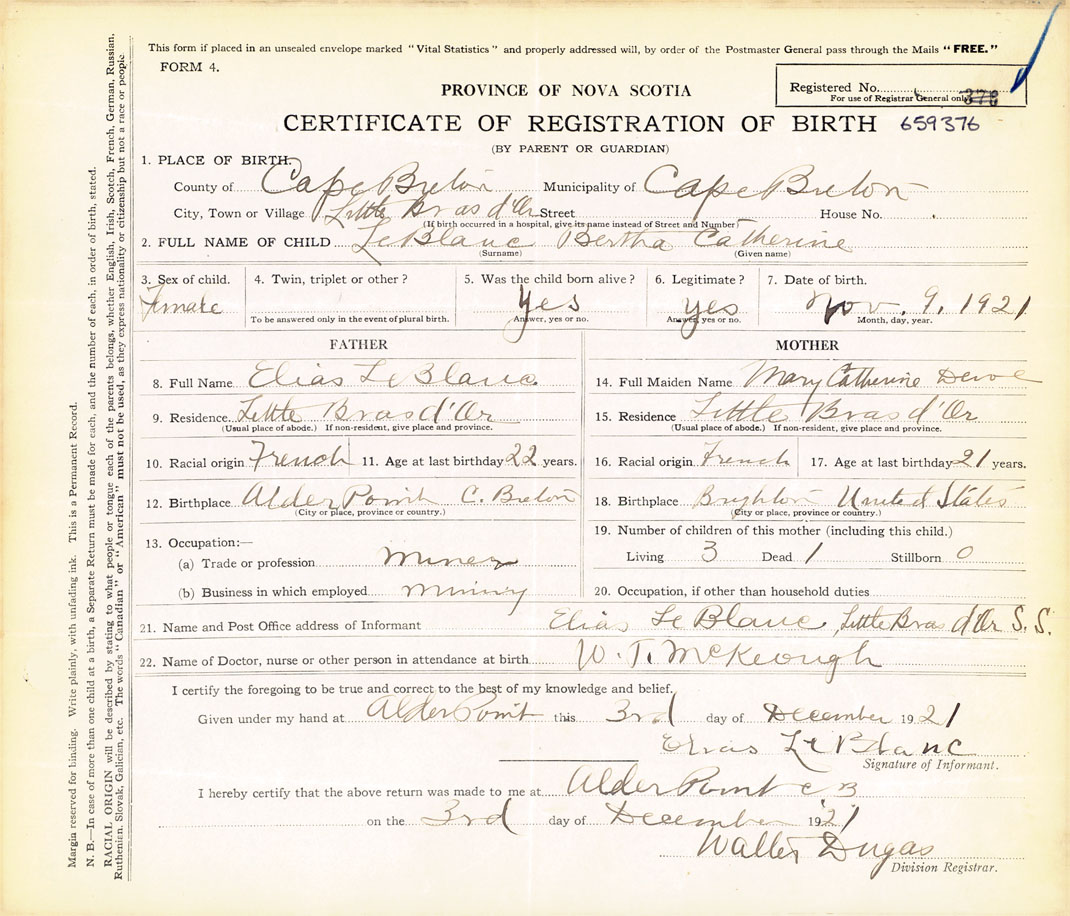 This form if placed in an unsealed envelope marked "Vital Statistics" and properly addressed will, by order of the Postmaster General pass through the Mails "FREE."
FORM 4.
PROVINCE OF NOVA SCOTIA
Registered No.
For use of Registrar General only
378
CERTIFICATE OF REGISTRATION OF BIRTH 659376
(BY PARENT OR GUARDIAN)
1. PLACE OF BIRTH.
County of Cape Breton Municipality of Cape Breton
City, Town or Village Little Bras d'Or Street House No.
(If birth occurred in a hospital, give its name instead of Street and Number)
2. FULL NAME OF CHILD LeBlanc Bertha Catherine
(Surname) (Given name)
3. Sex of child. 4. Twin, triplet or other? 5. Was the child born alive? 6. Legitimate? 7. Date of birth.
Female Yes yes Nov. 9, 1921
To be answered only in the event of plural birth. Answer, yes or no. Answer, yes or no. Month, day, year.
FATHER
8. Full Name Elias LeBlanc
9. Residence Little Bras d'Or
(Usual place of abode.) If non-resident, give place and province.
10. Racial origin French 11. Age at last birthday 22 years.
12. Birthplace Alder Point C. Breton
(City or place, province or country.)
13. Occupation:—
(a) Trade or profession Miner
(b) Business in which employed mining
MOTHER
14. Full Maiden Name Mary Catherine
15. Residence Little Bras d'Or
(Usual place of abode.) If non-resident, give place and province.
16. Racial origin French 17. Age at last birthday 21 years.
18. Birthplace Brighton United States
(City or place, province or country.)
19. Number of children of this mother (including this child.)
Living 3 Dead 1 Stillborn 0
20. Occupation, if other than household duties
21. Name and Post Office address of Informant Elias LeBlanc, Little Bras d'Or S.S.
22. Name of Doctor, nurse or other person in attendance at birth W. T. McKeough
I certify the foregoing to be true and correct to the best of my knowledge and belief.
Given under my hand at Alder Point this 3rd day of December 1921
Elias LeBlanc
Signature of Informant.
I hereby certify that the above return was made to me at Alder Point C B
on the 3rd day of December 1921
Walter Dugas
Division Registrar.
Margin reserved for binding. Write plainly, with unfading ink. This is a Permanent Record.
N. B.—In case of more than one child at a birth, a Separate Return must be made for each, and the number of each, in order of birth, stated.
RACIAL ORIGIN will be described by stating to what people or tongue each of the parents belongs, whether English, Irish, Scotch, French, German, Russian,
Ruthenian, Slovak, Galician, etc. The words "Canadian" or "American" must not be used, as they express nationality or citizenship but not a race or people